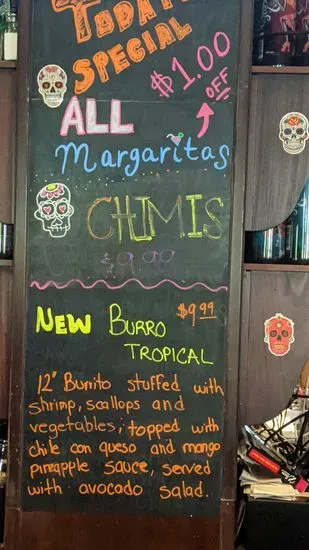 TODAY
SPECIAL
$1.00
OFF
ALL
Margaritas
CHIMIS
$9.99
NEW BURRO $9.99
TROPICAL
12" Burrito stuffed with
shrimp, scallops and
vegetables; topped with
chile con queso and mango
pineapple sauce, served
with avocado salad.